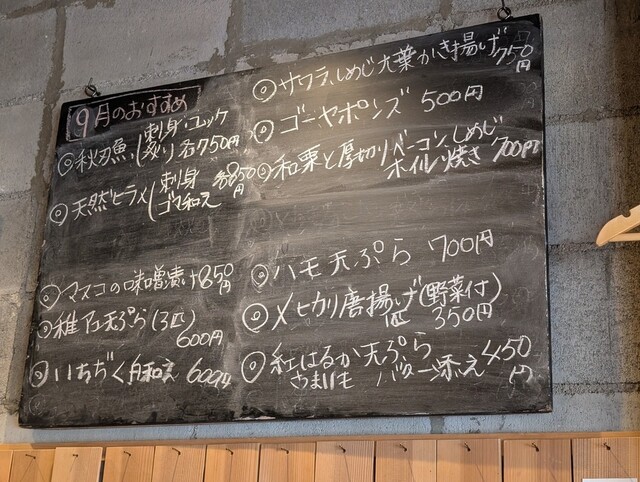 9月のおすすめ
◎秋刀魚 刺身・ユッケ
炙り 各750円
◎天然ヒラメ 刺身 各850円
ゴマ和え
◎マスコの味噌漬け 850円
◎稚アユ天ぷら(3匹)
600円
◎いちぢく白和え 600円
◎サワラ、しめじ大葉かき揚げ 750円
◎ゴーヤポンズ 500円
◎和栗と厚切りベーコン、しめじ
ホイル焼き 700円
◎ハモ天ぷら 700円
◎メヒカリ唐揚げ(野菜付)
350円
◎紅はるか天ぷら 450円
さつまいも バター添え